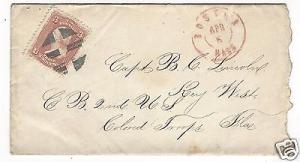 BOSTON
APR
6
MASS
Capt. B. C. Lincoln
Key West
C B 2nd U S
Colored Troops Fla